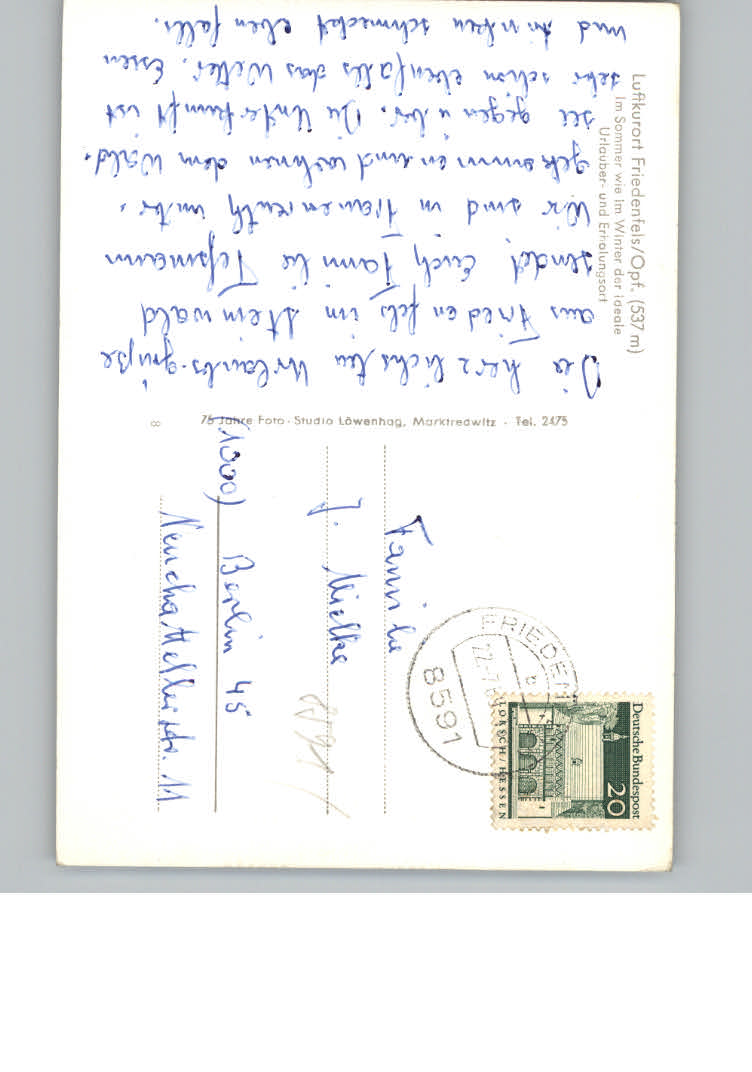 Luftkurort Friedenfels/Opf. (537 m)
Im Sommer wie im Winter der ideale
Urlauber- und Erholungsort
Die herzlichsten Urlaubs-grüße
aus Friedenfels im Steinwald
sendet Euch Familie
Wir sind in unter-
gekommen und wohnen dem Wald
gegenüber. Die Unterkunft ist
sehr schön ebenfalls das Wetter. Essen
und trinken schmeckt ebenfalls.
75 Jahre Foto-Studio Löwenhag, Marktredwitz · Tel. 2475
8
Familie
J. Mielke
(1000) Berlin 45
Neuchatellerstr. 11
FRIEDENF
22.7.6
b
8591
Deutsche Bundespost
20
LORSCH/HESSEN